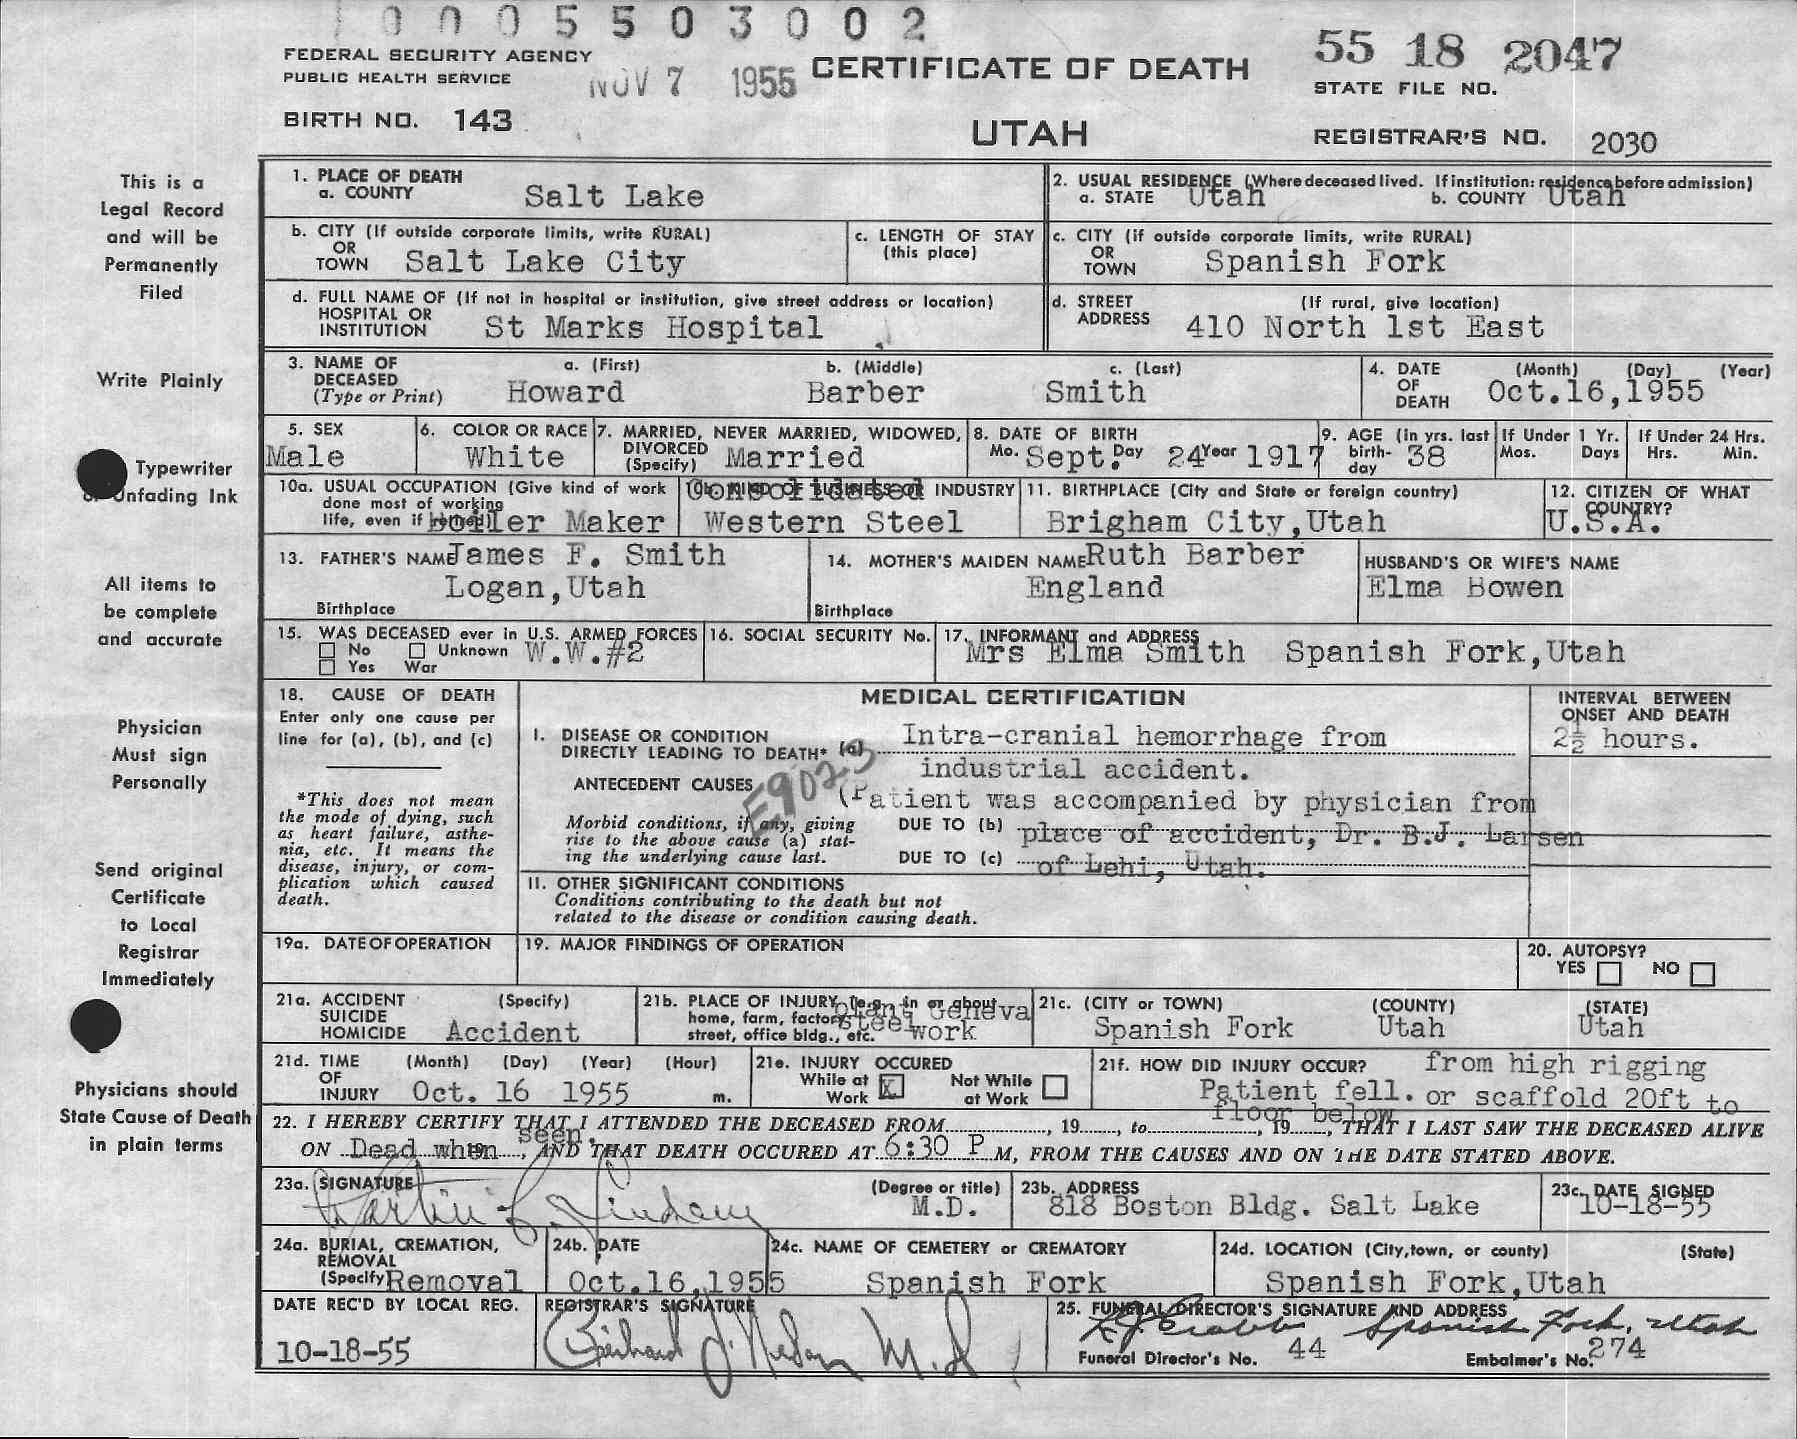 0005503002
FEDERAL SECURITY AGENCY
PUBLIC HEALTH SERVICE
NOV 7 1955
CERTIFICATE OF DEATH
55 18 2047
STATE FILE NO.
BIRTH NO. 143
UTAH
REGISTRAR'S NO. 2030
This is a
Legal Record
and will be
Permanently
Filed
Write Plainly
Typewriter
or Unfading Ink
All items to
be complete
and accurate
Physician
Must sign
Personally
Send original
Certificate
to Local
Registrar
Immediately
Physicians should
State Cause of Death
in plain terms
1. PLACE OF DEATH
a. COUNTY Salt Lake
2. USUAL RESIDENCE (Where deceased lived. If institution: residence before admission)
a. STATE Utah b. COUNTY Utah
b. CITY (If outside corporate limits, write RURAL)
OR
TOWN Salt Lake City
c. LENGTH OF STAY
(this place)
c. CITY (if outside corporate limits, write RURAL)
OR
TOWN Spanish Fork
d. FULL NAME OF (If not in hospital or institution, give street address or location)
HOSPITAL OR
INSTITUTION St Marks Hospital
d. STREET (If rural, give location)
ADDRESS 410 North 1st East
3. NAME OF
DECEASED
(Type or Print)
a. (First) b. (Middle) c. (Last)
Howard Barber Smith
4. DATE (Month) (Day) (Year)
OF
DEATH Oct.16,1955
5. SEX
Male
6. COLOR OR RACE
White
7. MARRIED, NEVER MARRIED, WIDOWED,
DIVORCED
(Specify) Married
8. DATE OF BIRTH
Mo. Sept. Day 24 Year 1917
9. AGE (In yrs. last
birth-
day 38
If Under 1 Yr.
Mos. Days
If Under 24 Hrs.
Hrs. Min.
10a. USUAL OCCUPATION (Give kind of work
done most of working
life, even if retired) Boiler Maker
10b. KIND OF BUSINESS OR INDUSTRY
Consolidated
Western Steel
11. BIRTHPLACE (City and State or foreign country)
Brigham City,Utah
12. CITIZEN OF WHAT
COUNTRY?
U.S.A.
13. FATHER'S NAME James F. Smith
Logan,Utah
Birthplace
14. MOTHER'S MAIDEN NAME Ruth Barber
England
Birthplace
HUSBAND'S OR WIFE'S NAME
Elma Bowen
15. WAS DECEASED ever in U.S. ARMED FORCES
No Unknown W.W.#2
Yes War
16. SOCIAL SECURITY No.
17. INFORMANT and ADDRESS
Mrs Elma Smith Spanish Fork,Utah
18. CAUSE OF DEATH
Enter only one cause per
line for (a), (b), and (c)
*This does not mean
the mode of dying, such
as heart failure, asthe-
nia, etc. It means the
disease, injury, or com-
plication which caused
death.
MEDICAL CERTIFICATION
INTERVAL BETWEEN
ONSET AND DEATH
2½ hours.
I. DISEASE OR CONDITION
DIRECTLY LEADING TO DEATH* (a) Intra-cranial hemorrhage from
industrial accident.
ANTECEDENT CAUSES
E9023
(Patient was accompanied by physician from
Morbid conditions, if any, giving
rise to the above cause (a) stat-
ing the underlying cause last.
DUE TO (b) place of accident, Dr. B.J. Larsen
DUE TO (c) of Lehi, Utah.
II. OTHER SIGNIFICANT CONDITIONS
Conditions contributing to the death but not
related to the disease or condition causing death.
19a. DATE OF OPERATION
19. MAJOR FINDINGS OF OPERATION
20. AUTOPSY?
YES NO
21a. ACCIDENT (Specify)
SUICIDE
HOMICIDE Accident
21b. PLACE OF INJURY (e.g., in or about
home, farm, factory,
street, office bldg., etc.
plant Geneva
steel work
21c. (CITY or TOWN) (COUNTY) (STATE)
Spanish Fork Utah Utah
21d. TIME (Month) (Day) (Year) (Hour)
OF
INJURY Oct. 16 1955 m.
21e. INJURY OCCURED
While at Work X Not While at Work
21f. HOW DID INJURY OCCUR? from high rigging
Patient fell. or scaffold 20ft to
floor below
22. I HEREBY CERTIFY THAT I ATTENDED THE DECEASED FROM , 19 , to , 19 , THAT I LAST SAW THE DECEASED ALIVE
ON Dead when seen. 19 , AND THAT DEATH OCCURED AT 6:30 P M, FROM THE CAUSES AND ON THE DATE STATED ABOVE.
23a. SIGNATURE (Degree or title)
Martin C. Lindem M.D.
23b. ADDRESS
818 Boston Bldg. Salt Lake
23c. DATE SIGNED
10-18-55
24a. BURIAL, CREMATION,
REMOVAL
(Specify Removal
24b. DATE
Oct.16,1955
24c. NAME OF CEMETERY or CREMATORY
Spanish Fork
24d. LOCATION (City,town, or county) (State)
Spanish Fork,Utah
DATE REC'D BY LOCAL REG.
10-18-55
REGISTRAR'S SIGNATURE
M.D.
25. FUNERAL DIRECTOR'S SIGNATURE AND ADDRESS
Spanish Fork, Utah
Funeral Director's No. 44
Embalmer's No. 274